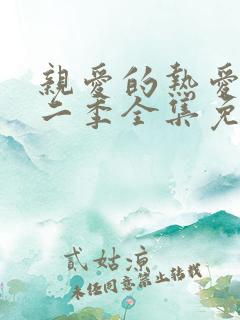 親愛的熱愛
二季全集免
貳姑涼
未經同意禁止轉載